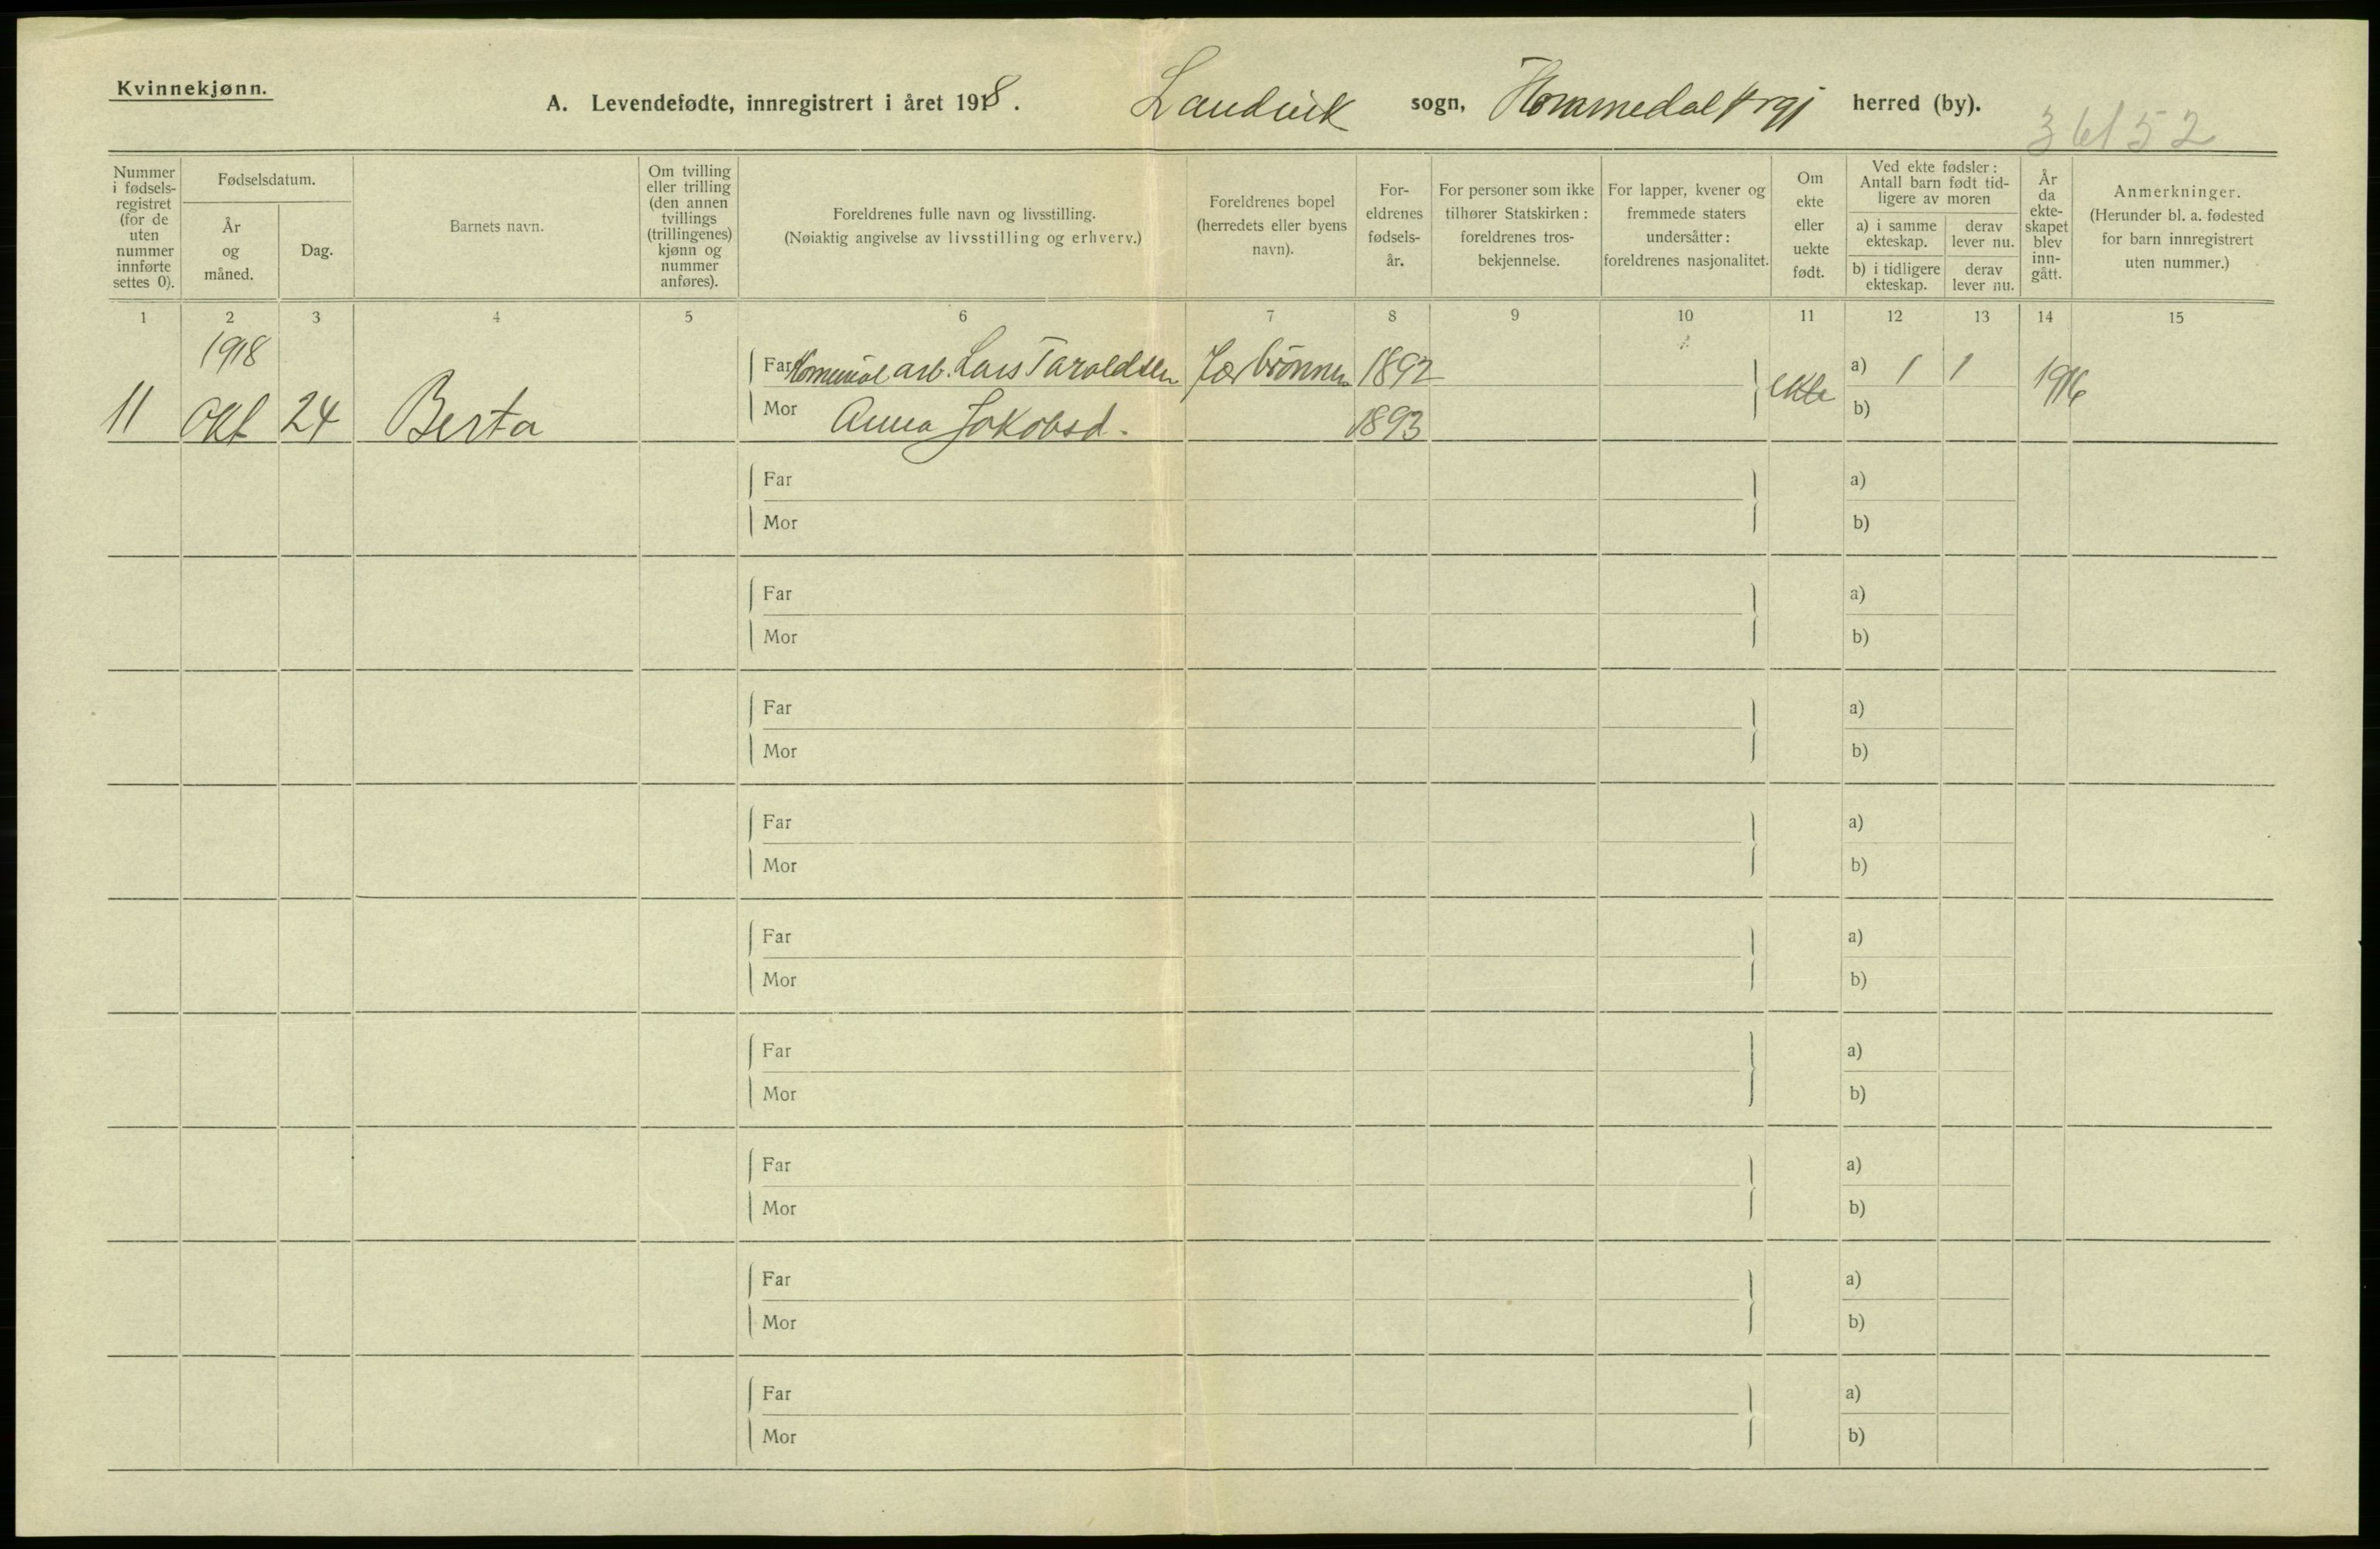 Kvinnekjønn.
A. Levendefødte, innregistrert i året 1918. Landvik sogn, Hommedal prgj herred (by).
36152
Nummer i fødselsregistret (for de uten nummer innførte settes 0).
Fødselsdatum.
År og måned.
Dag.
Barnets navn.
Om tvilling eller trilling (den annen tvillings (trillingenes) kjønn og nummer anføres).
Foreldrenes fulle navn og livsstilling.
(Nøiaktig angivelse av livsstilling og erhverv.)
Foreldrenes bopel (herredets eller byens navn).
Foreldrenes fødselsår.
For personer som ikke tilhører Statskirken: foreldrenes trosbekjennelse.
For lapper, kvener og fremmede staters undersåtter: foreldrenes nasjonalitet.
Om ekte eller uekte født.
Ved ekte fødsler: Antall barn født tidligere av moren
a) i samme ekteskap.
derav lever nu.
b) i tidligere ekteskap.
derav lever nu.
År da ekteskapet blev inngått.
Anmerkninger.
(Herunder bl. a. fødested for barn innregistrert uten nummer.)
1 2 3 4 5 6 7 8 9 10 11 12 13 14 15
1918
Far Komunal arb. Lars Taraldsen 1892 a) 1 1
11 Okt 24 Berta ekte 1916
Mor Anna Jakobsd. 1893 b)
Far a)
Mor b)
Far a)
Mor b)
Far a)
Mor b)
Far a)
Mor b)
Far a)
Mor b)
Far a)
Mor b)
Far a)
Mor b)
Far a)
Mor b)
Far a)
Mor b)